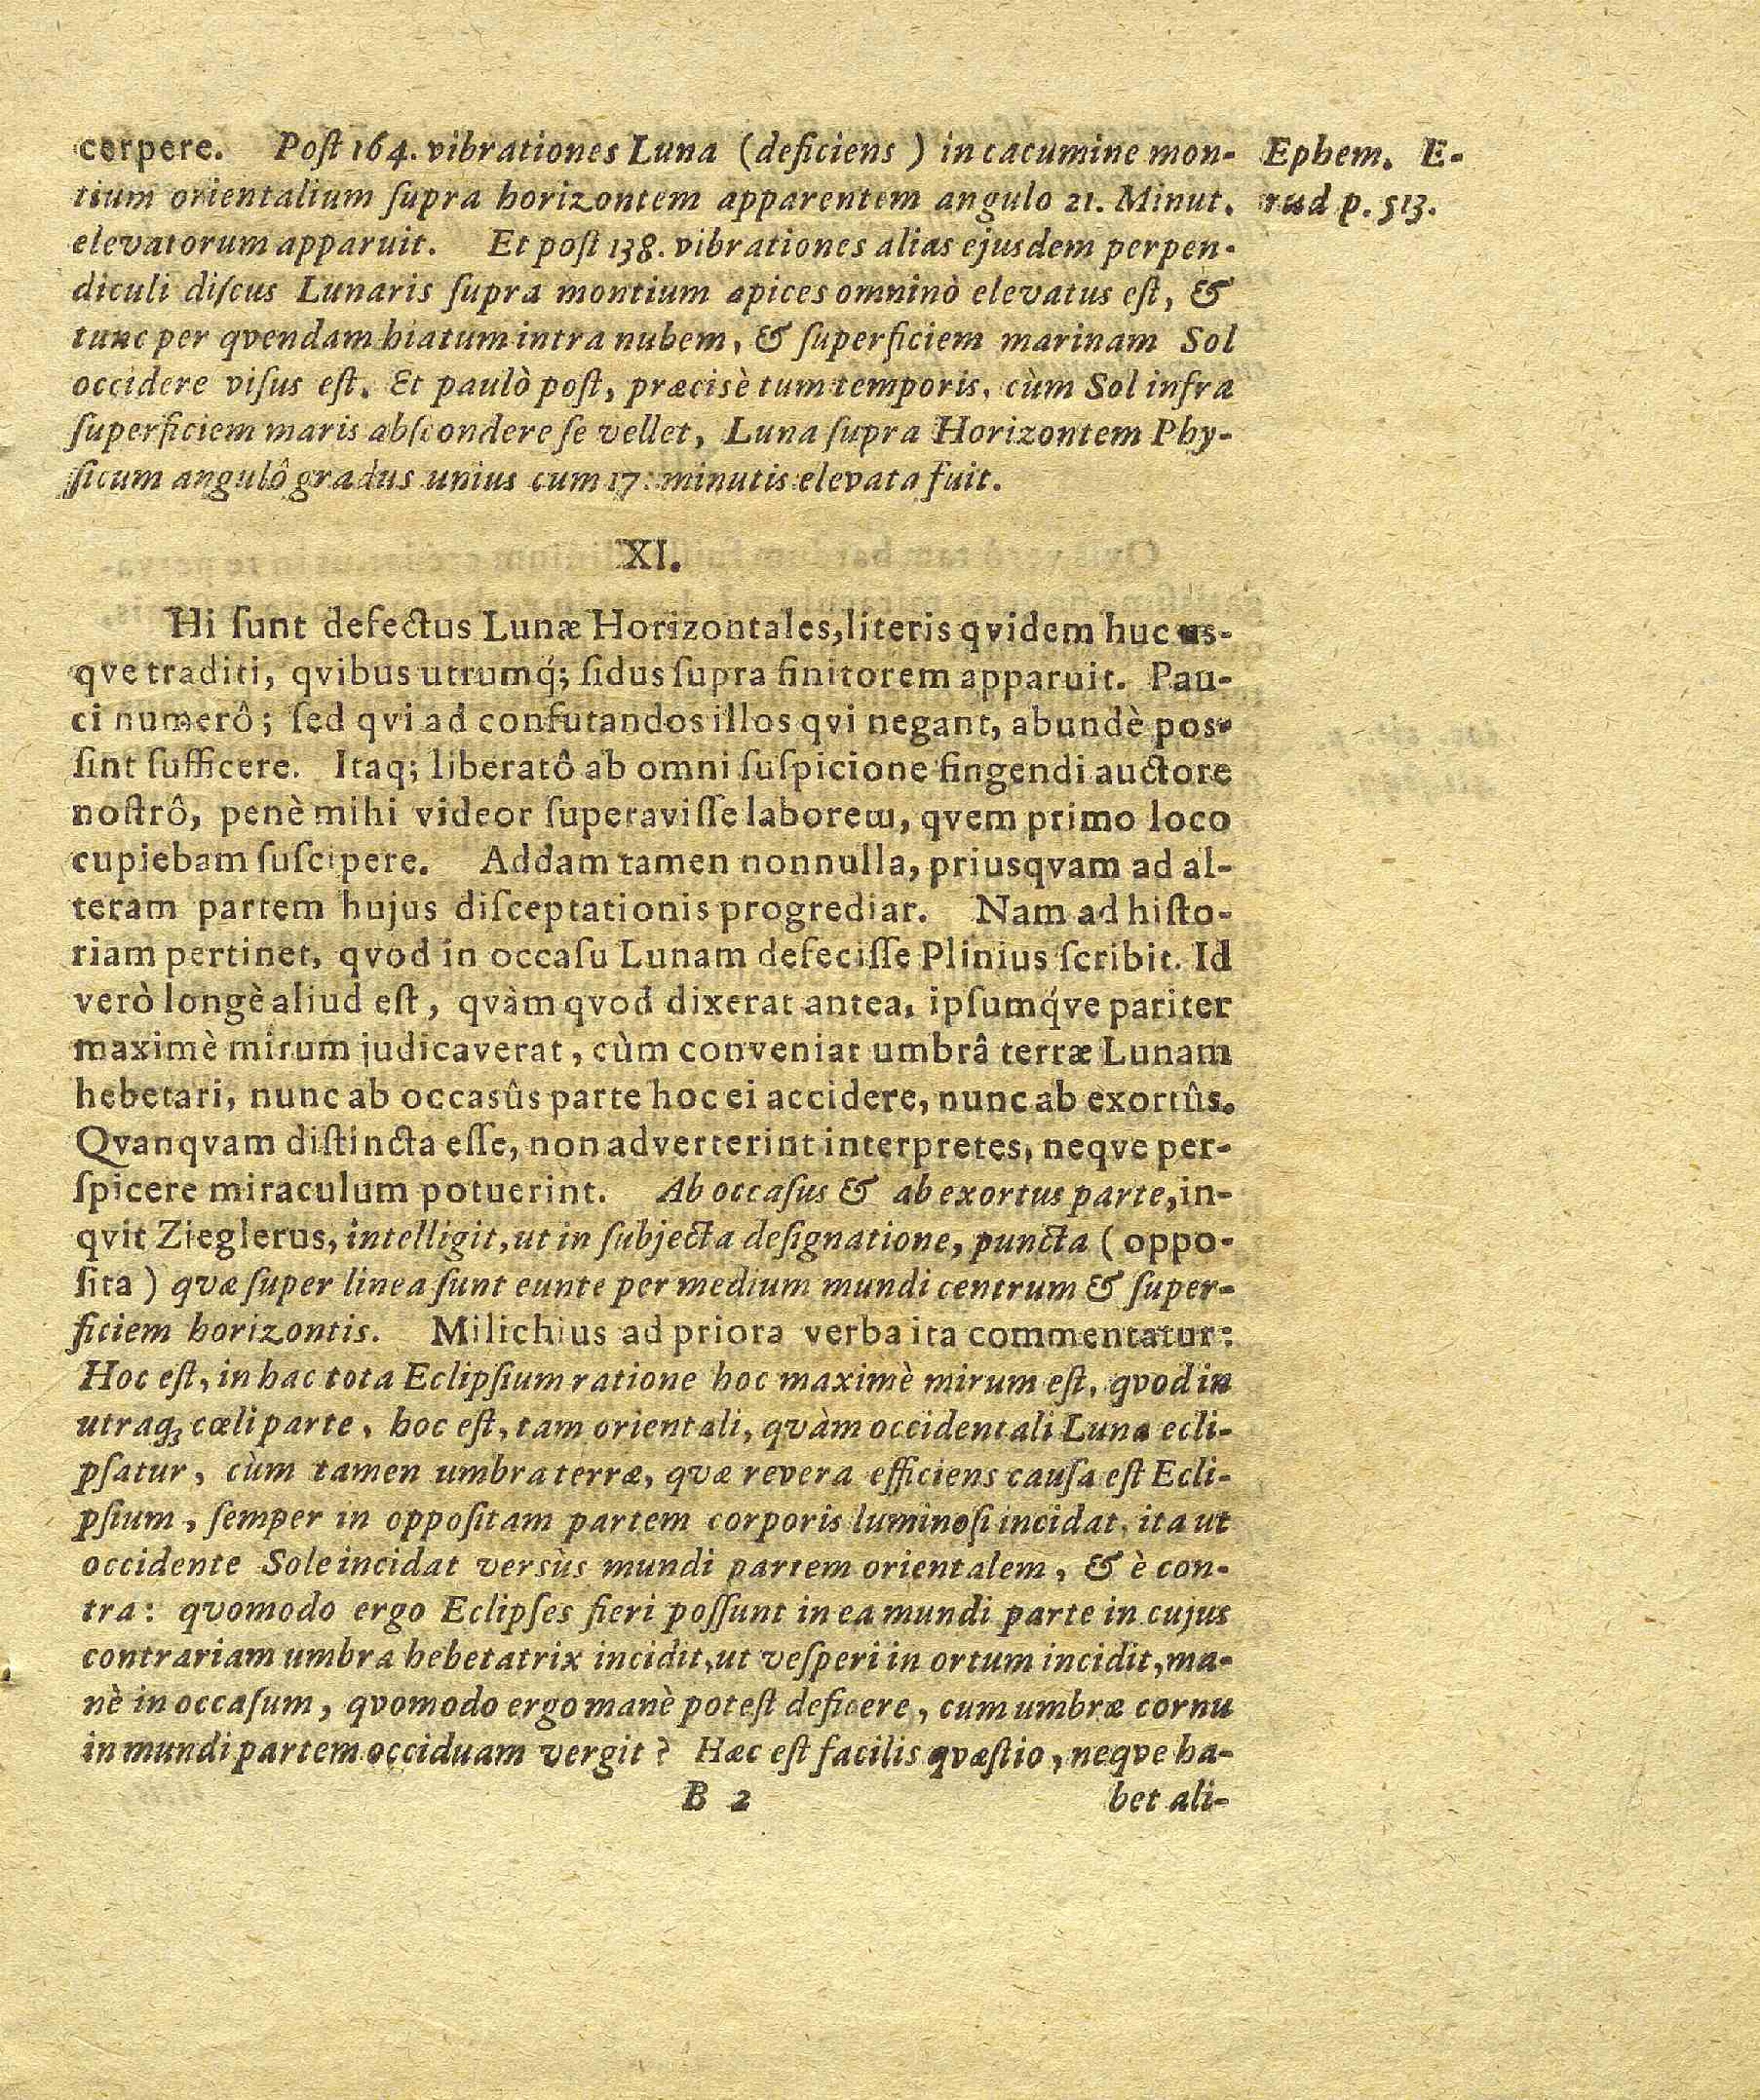 cerpere. Poſt 164. vibrationes Luna (deficiens) in cacumine mon-
tium orientalium ſupra horizontem apparentem angulo 21. Minut.
elevatorum apparuit. Et poſt 138. vibrationes alias ejusdem perpen-
diculi diſcus Lunaris ſupra montium apices omninò elevatus eſt, &
tunc per qvendam hiatum intra nubem, & ſuperficiem marinam Sol
occidere viſus eſt. Et paulò poſt, præcisè tum temporis, cùm Sol infra
ſuperficiem maris abſcondere ſe vellet, Luna ſupra Horizontem Phy-
ſicum angulô gradus unius cum 17. minutis elevata fuit.
Ephem. E-
rud p. 513.
XI.
Hi ſunt defectus Lunæ Horizontales, literis qvidem huc us-
qve traditi, qvibus utrumq́; ſidus ſupra finitorem apparuit. Pau-
ci numerô; ſed qvi ad confutandos illos qvi negant, abundè pos-
ſint ſufficere. Itaq; liberatô ab omni ſuſpicione fingendi auctore
noſtrô, penè mihi videor ſuperaviſſe laborem, qvem primo loco
cupiebam ſuſcipere. Addam tamen nonnulla, priusqvam ad al-
teram partem hujus diſceptationis progrediar. Nam ad hiſto-
riam pertinet, qvod in occaſu Lunam defeciſſe Plinius ſcribit. Id
verò longè aliud eſt, qvàm qvod dixerat antea, ipſumq́ve pariter
maximè mirum judicaverat, cùm conveniat umbrâ terræ Lunam
hebetari, nunc ab occasûs parte hoc ei accidere, nunc ab exortûs.
Qvanqvam diſtincta eſſe, non adverterint interpretes, neqve per-
ſpicere miraculum potuerint. Ab occaſus & ab exortus parte, in-
qvit Zieglerus, intelligit, ut in ſubjecta deſignatione, puncta (oppo-
ſita) qvæ ſuper linea ſunt eunte per medium mundi centrum & ſuper-
ficiem horizontis. Milichius ad priora verba ita commentatur:
Hoc eſt, in hac tota Eclipſium ratione hoc maximè mirum eſt, qvod in
utraq; cœli parte, hoc eſt, tam orientali, qvàm occidentali Luna ecli-
pſatur, cùm tamen umbra terræ, qvæ revera efficiens cauſa eſt Ecli-
pſium, ſemper in oppoſitam partem corporis luminoſi incidat, ita ut
occidente Sole incidat versùs mundi partem orientalem, & è con-
tra: qvomodo ergo Eclipſes fieri poſſunt in ea mundi parte in cujus
contrariam umbra hebetatrix incidit, ut veſperi in ortum incidit, ma-
nè in occaſum, qvomodo ergo manè poteſt deficere, cum umbræ cornu
in mundi partem occiduam vergit? Hæc eſt facilis qvæſtio, neqve ha-
B 2
bet ali-